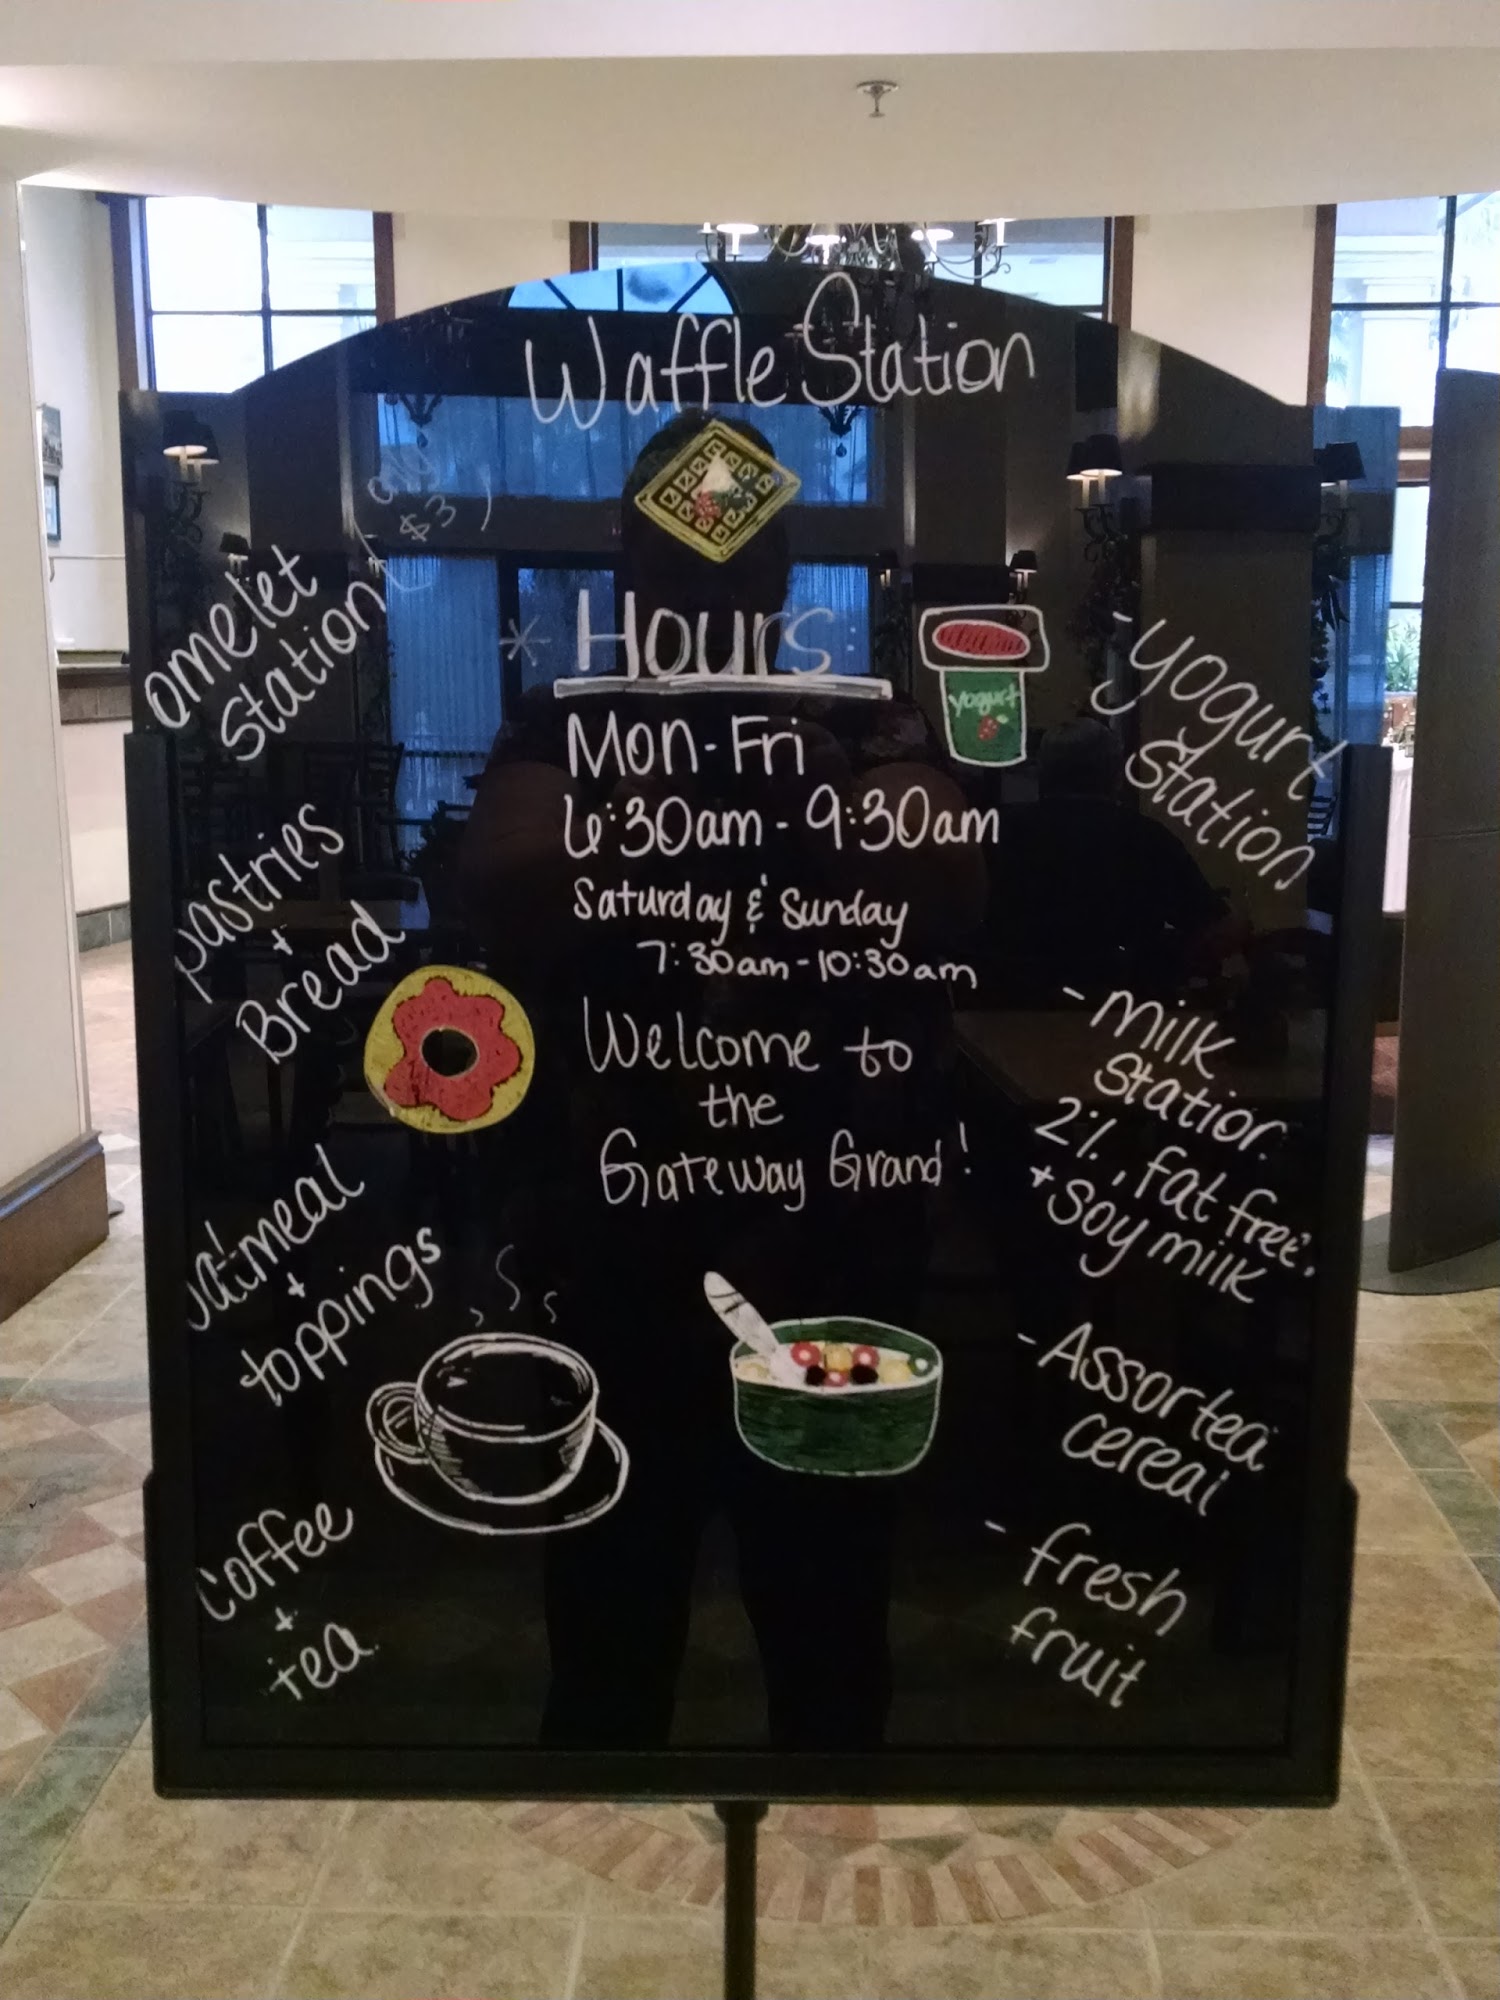 Waffle Station
omelet
station
(add
$3)
pastries
+
Bread
oatmeal
+
toppings
Coffee
+
tea
* Hours:
Mon-Fri
6:30am - 9:30am
Saturday & Sunday
7:30am-10:30am
Welcome to
the
Gateway Grand!
yogurt
- yogurt
station
- milk
station
2%, fat free,
+ soy milk
- Assorted
cereal
- fresh
fruit